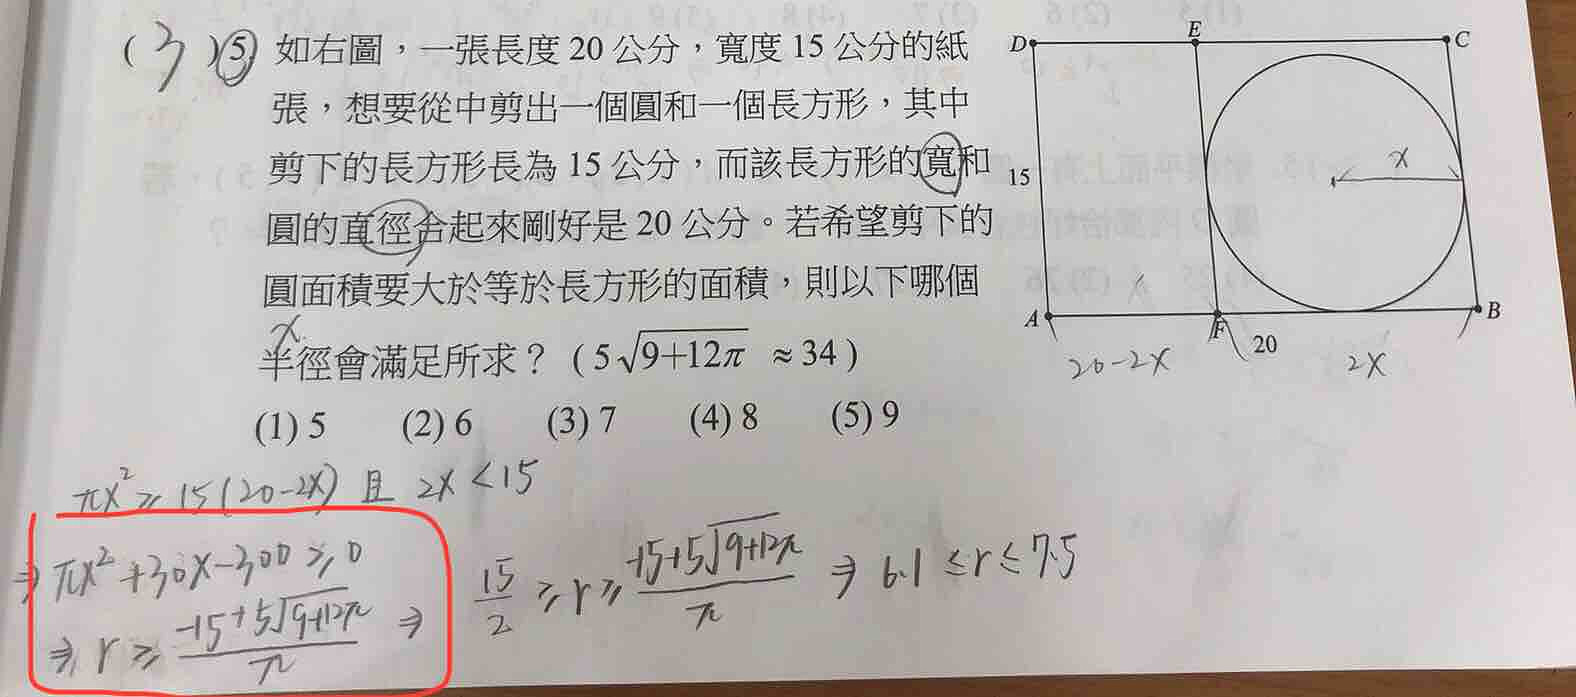 ( 3 ) 5. 如右圖，一張長度 20 公分，寬度 15 公分的紙
張，想要從中剪出一個圓和一個長方形，其中
剪下的長方形長為 15 公分，而該長方形的寬和
圓的直徑合起來剛好是 20 公分。若希望剪下的
圓面積要大於等於長方形的面積，則以下哪個
x
半徑會滿足所求？ ( 5√(9+12π) ≈ 34 )
(1) 5 (2) 6 (3) 7 (4) 8 (5) 9
D E C
x
15
A F B
20
20-2x 2x
πx² ≥ 15(20-2x) 且 2x < 15
⇒ πx² + 30x - 300 ≥ 0
⇒ r ≥ (-15+5√(9+12π))/π ⇒ 15/2 ≥ r ≥ (-15+5√(9+12π))/π ⇒ 6.1 ≤ r ≤ 7.5